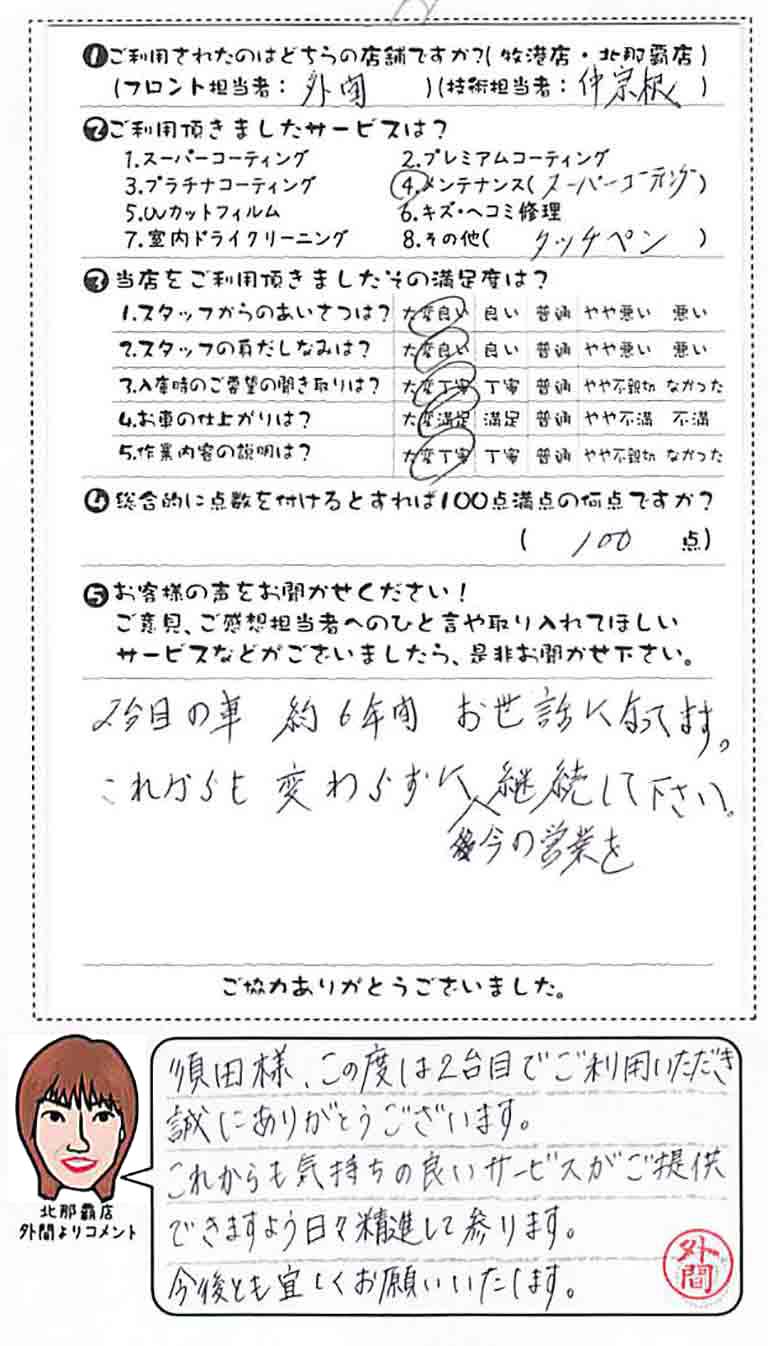 ❶ご利用されたのはどちらの店舗ですか?(牧港店・北那覇店)
(フロント担当者: 外間 )(技術担当者: 仲宗根 )
❷ご利用頂きましたサービスは?
1.スーパーコーティング 2.プレミアムコーティング
3.プラチナコーティング ④.メンテナンス(スーパーコーティング)
5.UVカットフィルム 6.キズ・ヘコミ修理
7.室内ドライクリーニング 8.その他( タッチペン )
❸当店をご利用頂きましたその満足度は?
1.スタッフからのあいさつは? 大変良い 良い 普通 やや悪い 悪い
2.スタッフの身だしなみは? 大変良い 良い 普通 やや悪い 悪い
3.入庫時のご要望の聞き取りは? 大変丁寧 丁寧 普通 やや不親切 なかった
4.お車の仕上がりは? 大変満足 満足 普通 やや不満 不満
5.作業内容の説明は? 大変丁寧 丁寧 普通 やや不親切 なかった
❹総合的に点数を付けるとすれば100点満点の何点ですか?
( 100 点)
❺お客様の声をお聞かせください!
ご意見、ご感想担当者へのひと言や取り入れてほしい
サービスなどがございましたら、是非お聞かせ下さい。
2台目の車 約6年間 お世話になってます。
これからも変わらずに継続して下さい。
今の営業を
ご協力ありがとうございました。
須田様、この度は2台目でご利用いただき
誠にありがとうございます。
これからも気持ちの良いサービスがご提供
できますよう日々精進して参ります。
今後とも宜しくお願いいたします。
外間
北那覇店
外間よりコメント